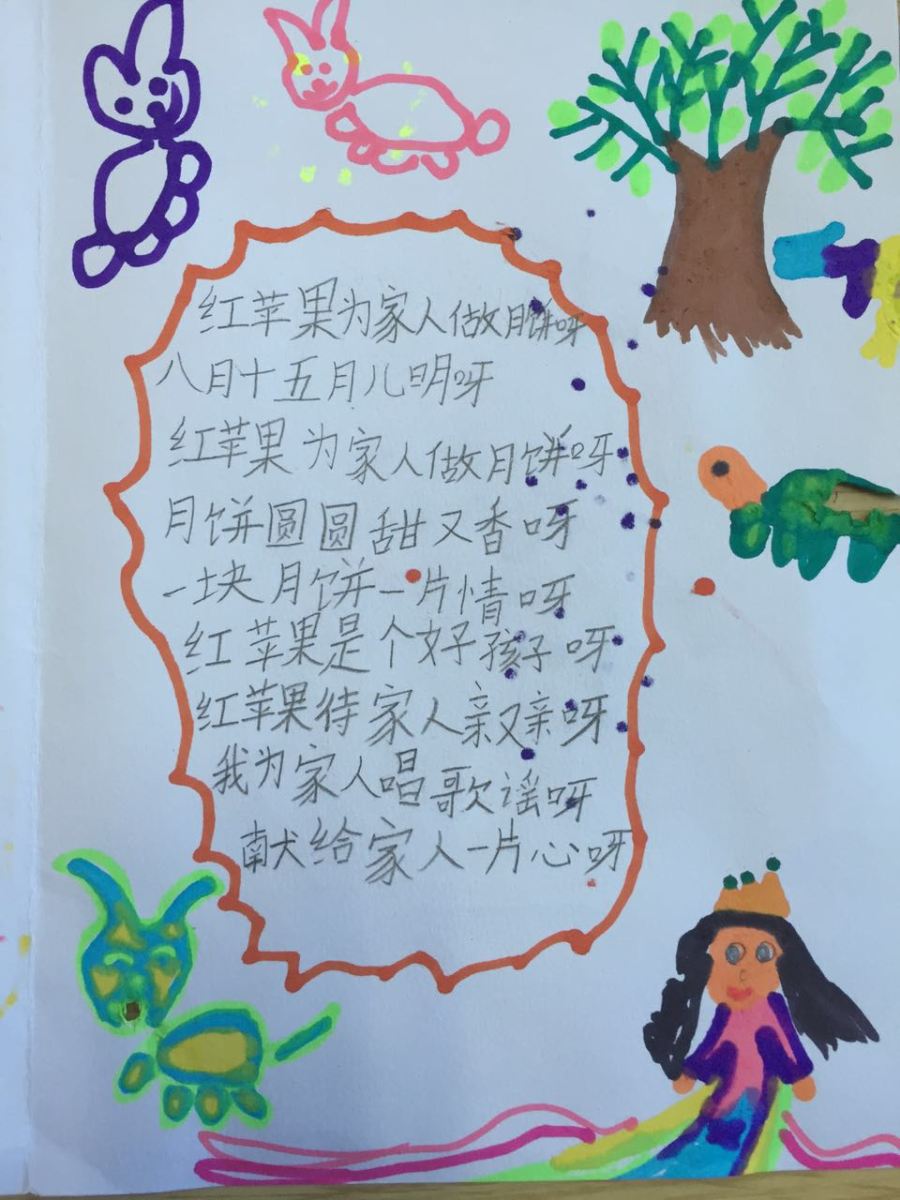 红苹果为家人做月饼呀
八月十五月儿明呀
红苹果为家人做月饼呀
月饼圆圆甜又香呀
一块月饼一片情呀
红苹果是个好孩子呀
红苹果待家人亲又亲呀
我为家人唱歌谣呀
献给家人一片心呀